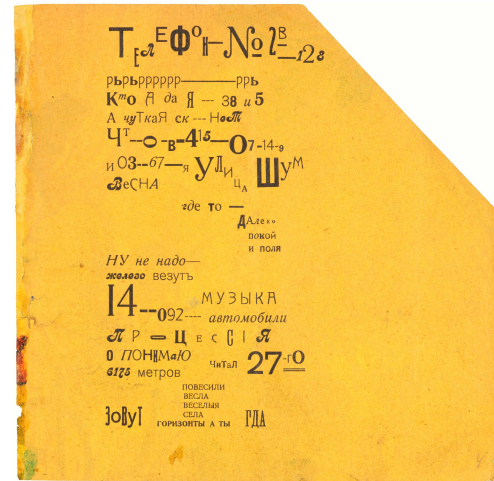 ТЕЛЕФОН—№ 2В—128
рЬрЬрррррр————ррЬ
КтО А да Я --- 38 и 5
А чуТкаЯ ск --- НеТ
ЧТ—О-в-415—О7-14-э
и О3--67—я УЛИЦА ШУМ
ВеСНА
где ТО —
ДАЛеко
покой
и поля
НУ не надо—
железо везутъ
14--092---- МУЗЫКА
автомобили
ПР—ЦЕССІЯ
О ПОНИМаЮ
ЧиТаЛ 27-гО
6175 метров
ПОВЕСИЛИ
ВЕСЛА
ВЕСЕЛЫЯ
СЕЛА
ЗОВУТ ГОРИЗОНТЫ А ТЫ ГДА